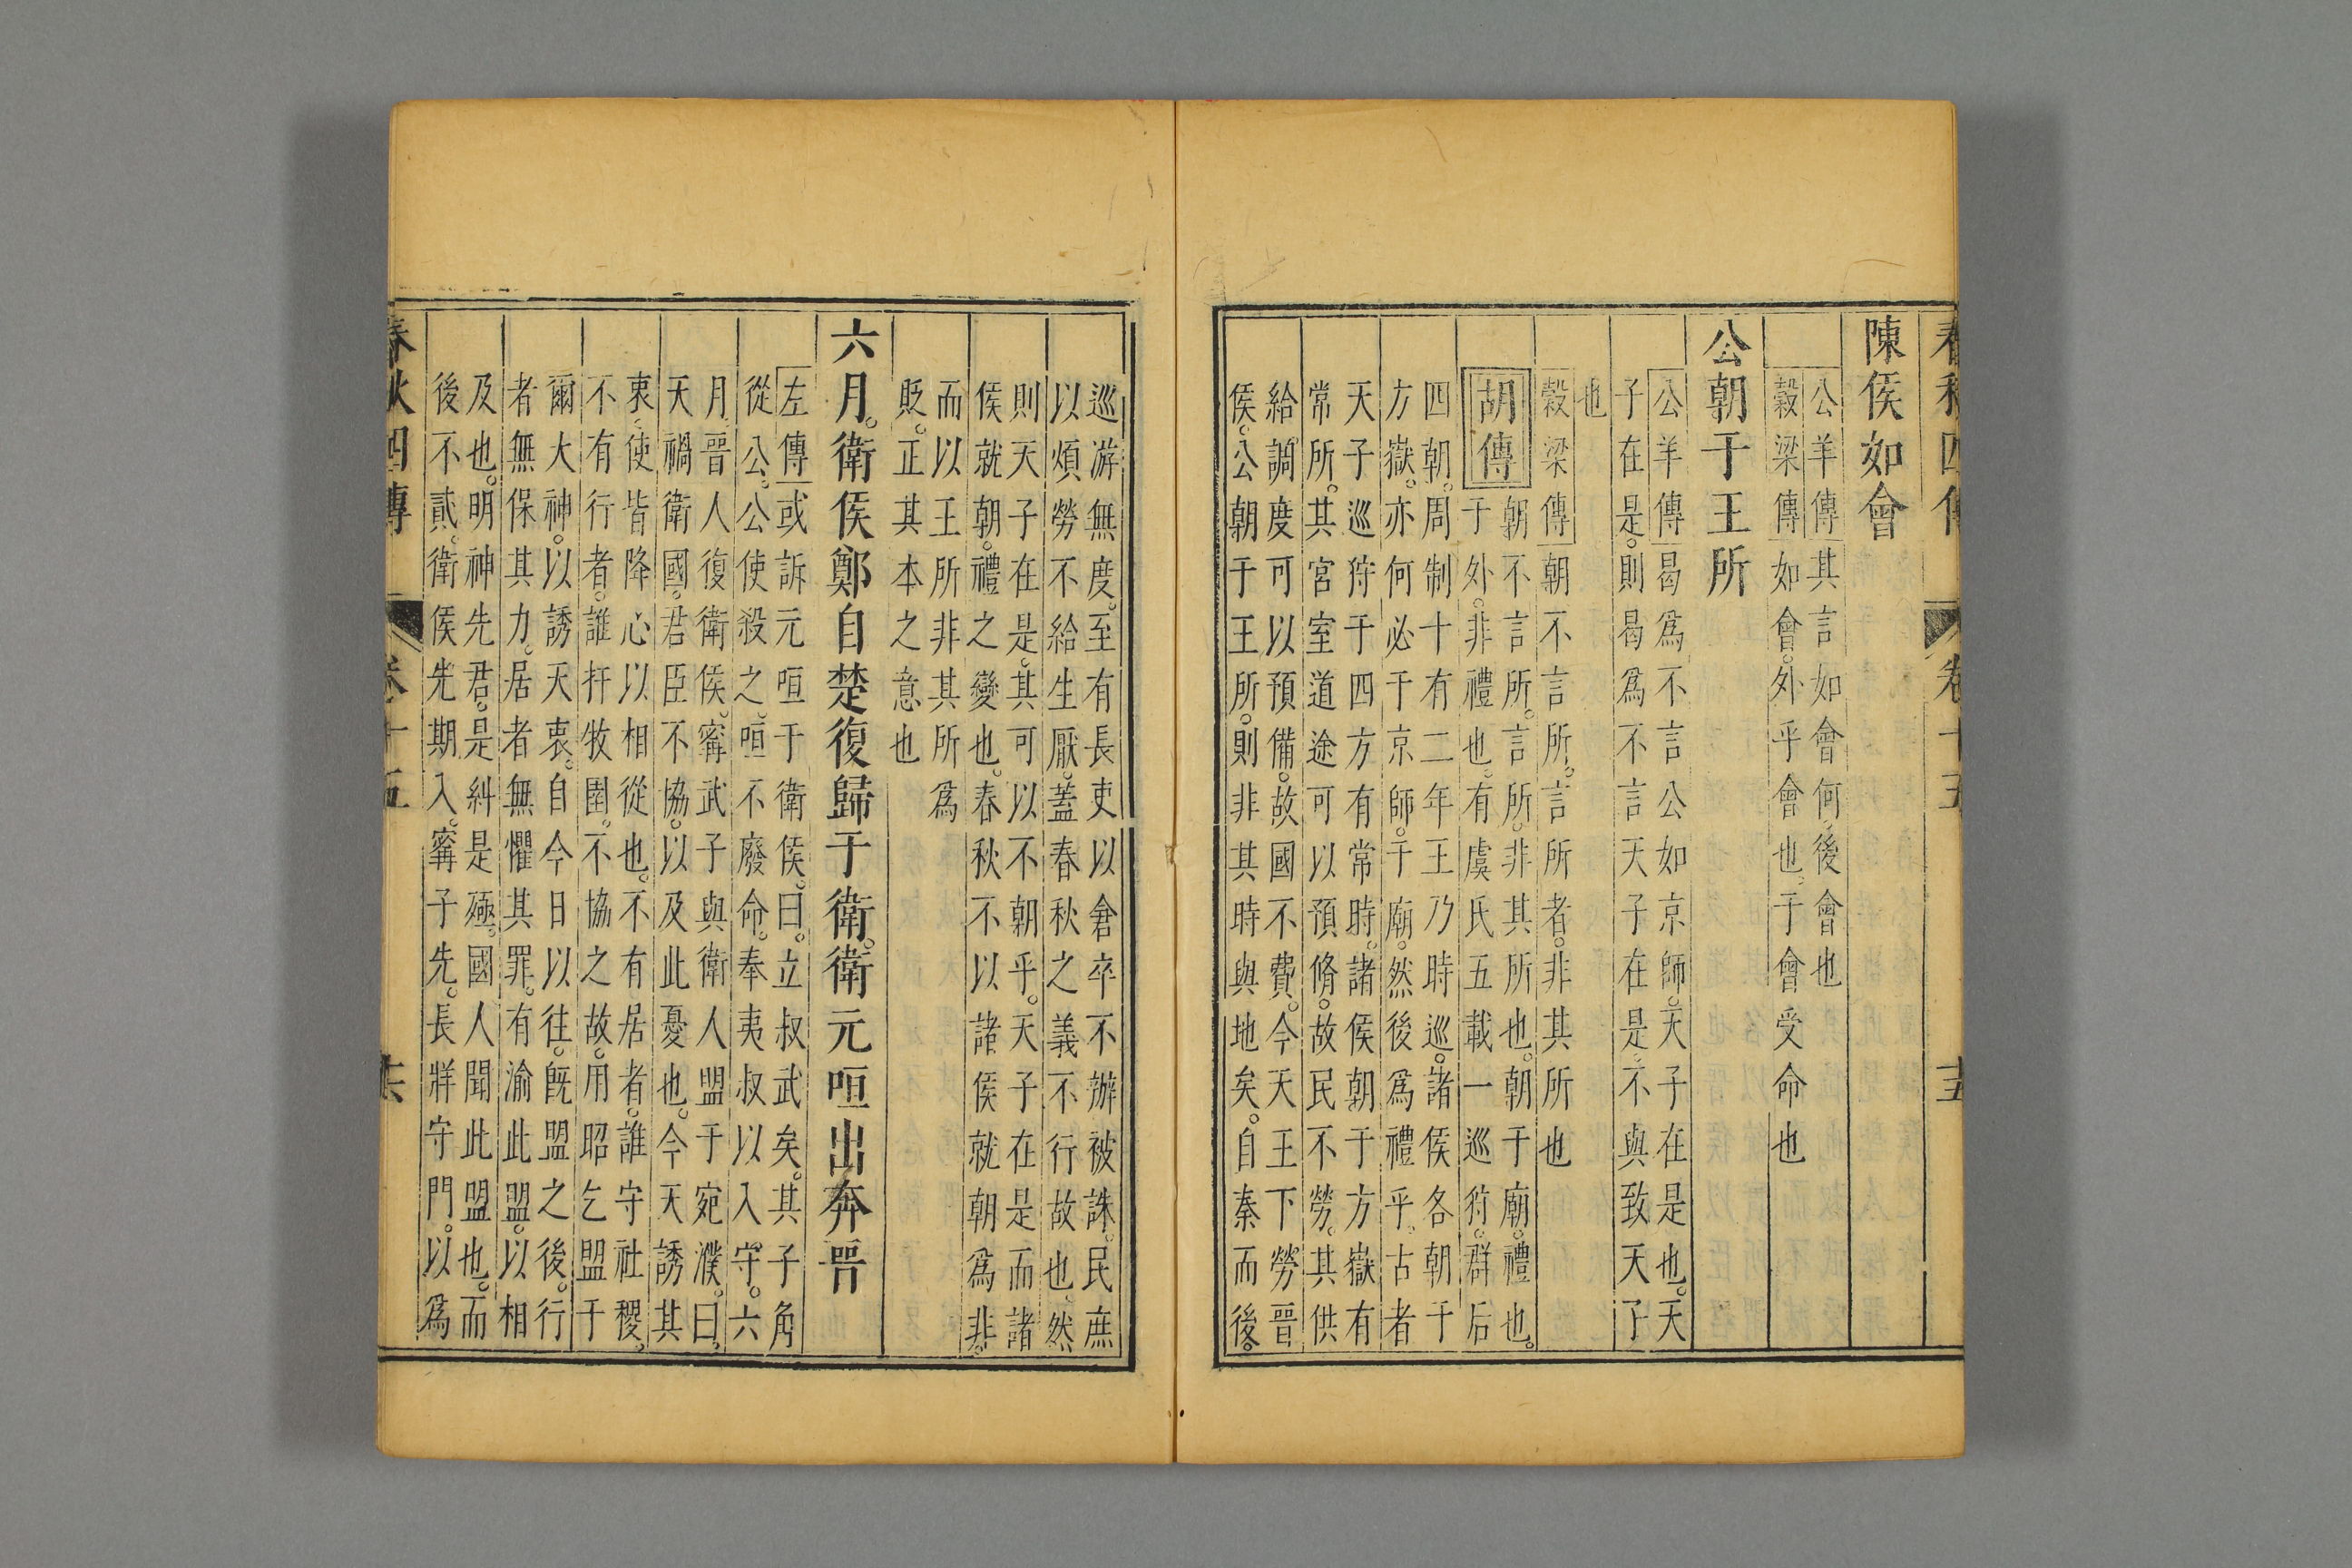 春秋四傳 卷十五 十五
陳侯如會
公羊傳其言如會何。後會也
穀梁傳如會。外乎會也。于會受命也
公朝于王所
公羊傳曷爲不言公如京師。天子在是也。天
子在是。則曷爲不言天子在是。不與致天子
也
穀梁傳朝不言所。言所者。非其所也
胡傳朝不言所。言所。非其所也。朝于廟。禮也。
于外。非禮也。有虞氏五載一巡狩。群后
四朝。周制十有二年王乃時巡。諸侯各朝于
方嶽。亦何必于京師。于廟。然後爲禮乎。古者
天子巡狩于四方有常時。諸侯朝于方嶽有
常所。其宮室道途可以預脩。故民不勞。其供
給調度可以預備。故國不費。今天王下勞晉
侯。公朝于王所。則非其時與地矣。自秦而後。
巡游無度。至有長吏以倉卒不辦被誅。民庶
以煩勞不給生厭。蓋春秋之義不行故也。然
則天子在是。其可以不朝乎。天子在是而諸
侯就朝。禮之變也。春秋不以諸侯就朝爲非。
而以王所非其所爲
貶。正其本之意也
六月。衛侯鄭自楚復歸于衛。衛元咺出奔晉
左傳或訴元咺于衛侯。曰。立叔武矣。其子角
從公。公使殺之。咺不廢命。奉夷叔以入守。六
月。晉人復衛侯。甯武子與衛人盟于宛濮。曰。
天禍衛國。君臣不協。以及此憂也。今天誘其
衷。使皆降心以相從也。不有居者。誰守社稷。
不有行者。誰扞牧圉。不協之故。用昭乞盟于
爾大神。以誘天衷。自今日以往。旣盟之後。行
者無保其力。居者無懼其罪。有渝此盟。以相
及也。明神先君。是糾是殛。國人聞此盟也。而
後不貳。衛侯先期入。甯子先。長牂守門。以爲
春秋四傳 卷十五 十六